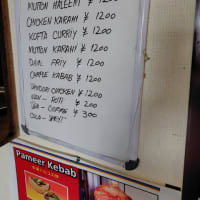 MUTTON HALEEM ¥ 1200
CHICKEN KARAHI ¥ 1200
KOFTA CURRIY ¥ 1200
MUTTON KARAHI ¥ 1200
DAAL FRIY ¥ 1200
CHAPLE KABAB ¥ 1200
TANDORI CHICKEN ¥ 1200
NAN - ROTI ¥ 200
TEA - COFFEE ¥ 300
COLA -
Pameer Kebab